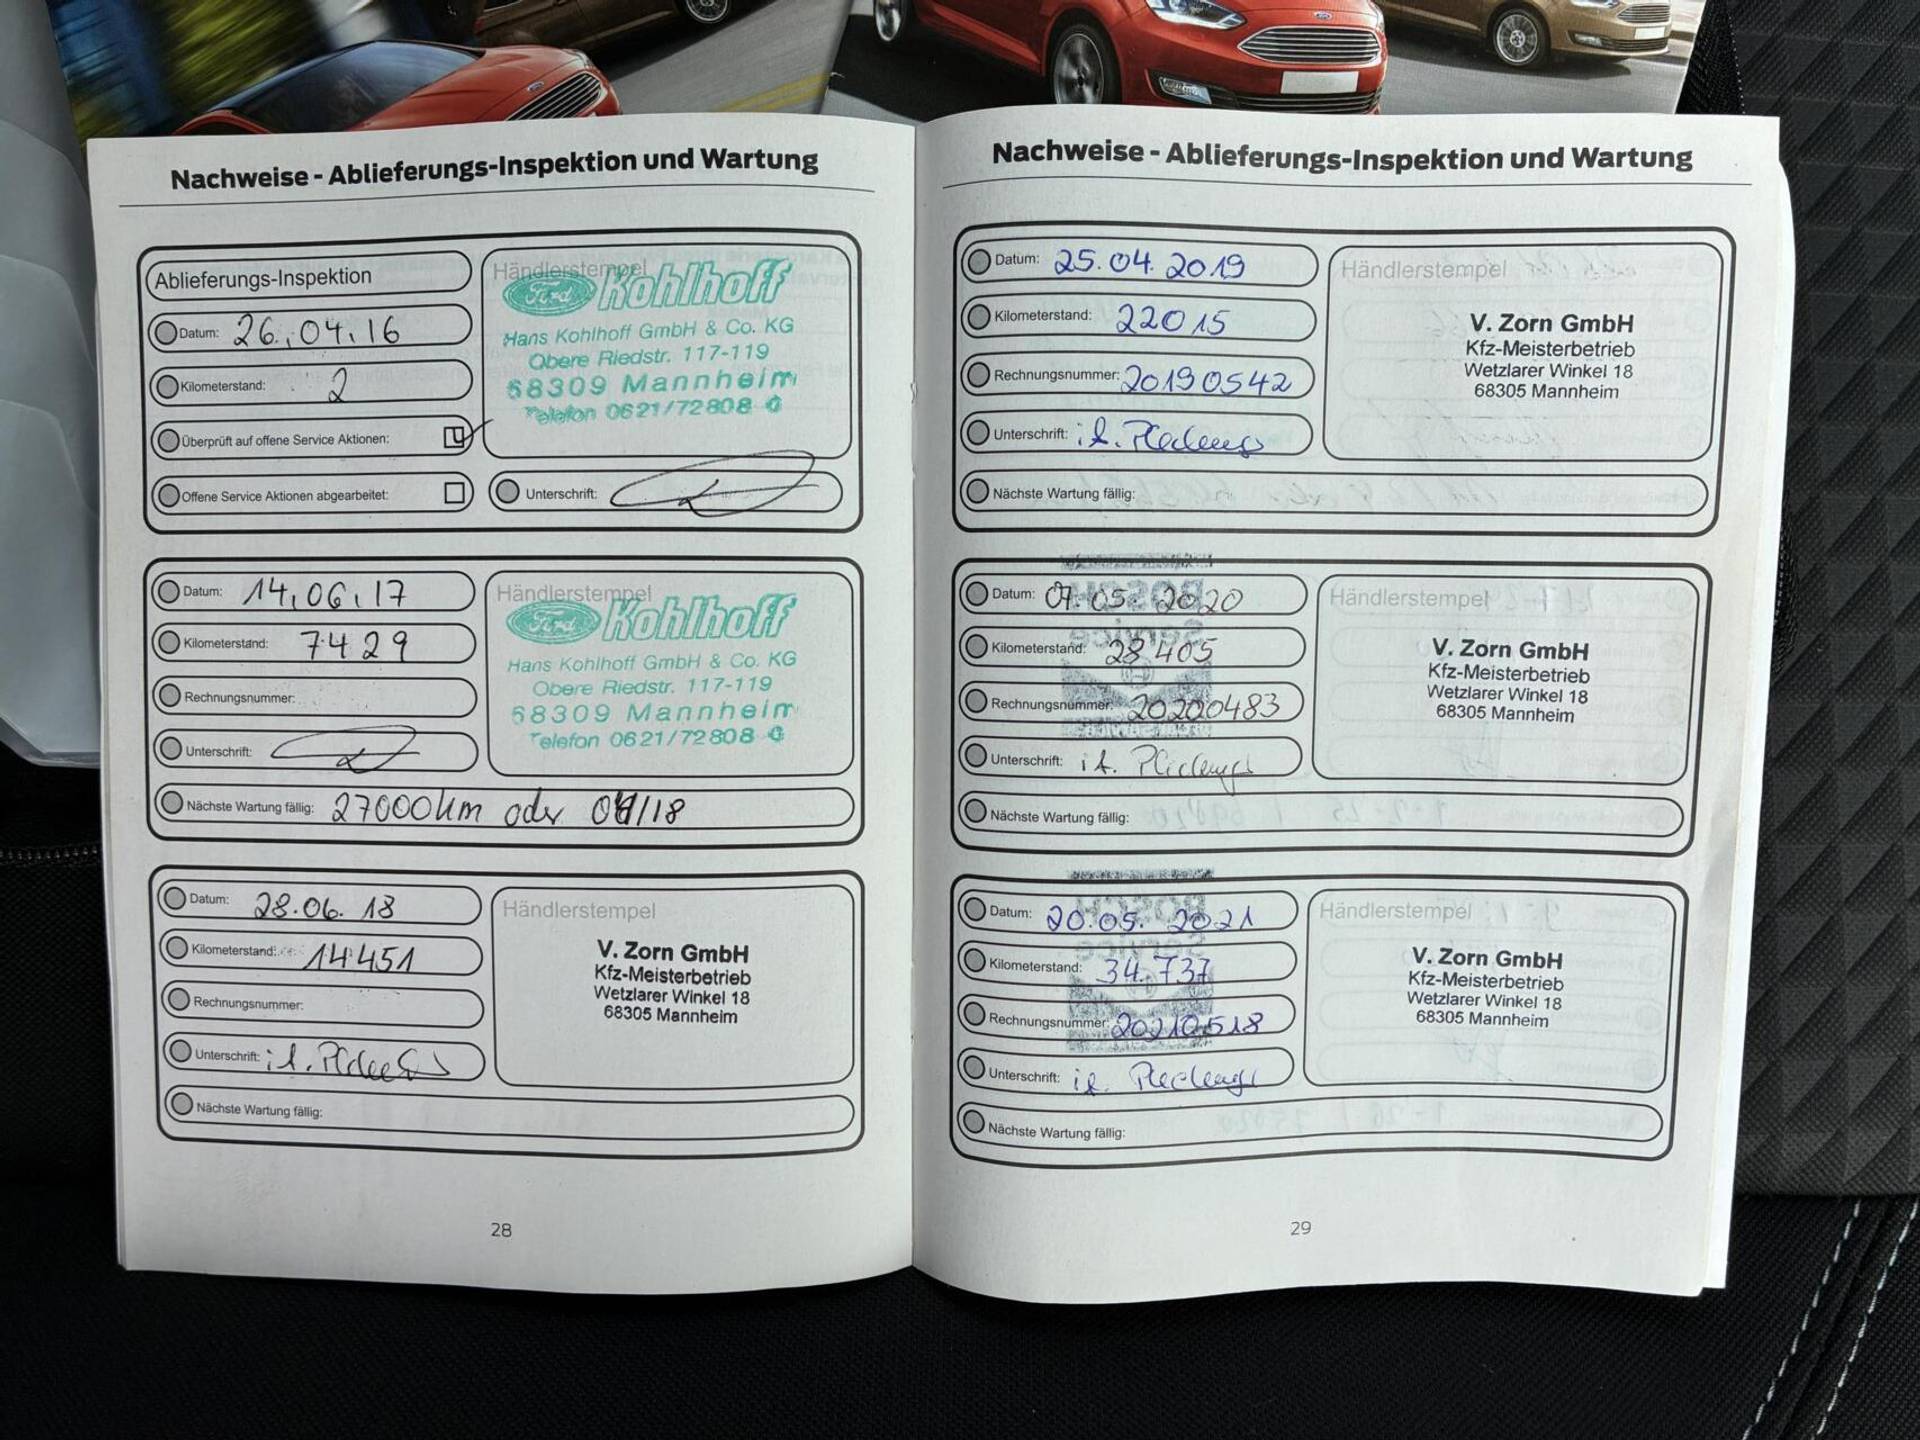 Nachweise - Ablieferungs-Inspektion und Wartung
Ablieferungs-Inspektion
Datum: 26.04.16
Kilometerstand: 2
Überprüft auf offene Service Aktionen:
Offene Service Aktionen abgearbeitet:
Händlerstempel
Ford Kohlhoff
Hans Kohlhoff GmbH & Co. KG
Obere Riedstr. 117-119
68309 Mannheim
Telefon 0621/72808
Unterschrift:
Datum: 14.06.17
Kilometerstand: 7429
Rechnungsnummer:
Unterschrift:
Nächste Wartung fällig: 27000km oder
Händlerstempel
Ford Kohlhoff
Hans Kohlhoff GmbH & Co. KG
Obere Riedstr. 117-119
68309 Mannheim
Telefon 0621/72808
Datum: 28.06.18
Kilometerstand: 14451
Rechnungsnummer:
Unterschrift:
Nächste Wartung fällig:
Händlerstempel
V. Zorn GmbH
Kfz-Meisterbetrieb
Wetzlarer Winkel 18
68305 Mannheim
28
Nachweise - Ablieferungs-Inspektion und Wartung
Datum: 25.04.2019
Kilometerstand: 22015
Rechnungsnummer: 20190542
Unterschrift:
Nächste Wartung fällig:
Händlerstempel
V. Zorn GmbH
Kfz-Meisterbetrieb
Wetzlarer Winkel 18
68305 Mannheim
Datum: 07.05.2020
Kilometerstand: 28405
Rechnungsnummer: 20200483
Unterschrift:
Nächste Wartung fällig:
Händlerstempel
V. Zorn GmbH
Kfz-Meisterbetrieb
Wetzlarer Winkel 18
68305 Mannheim
Datum: 20.05.2021
Kilometerstand: 34.737
Rechnungsnummer: 20210518
Unterschrift:
Nächste Wartung fällig:
Händlerstempel
V. Zorn GmbH
Kfz-Meisterbetrieb
Wetzlarer Winkel 18
68305 Mannheim
29